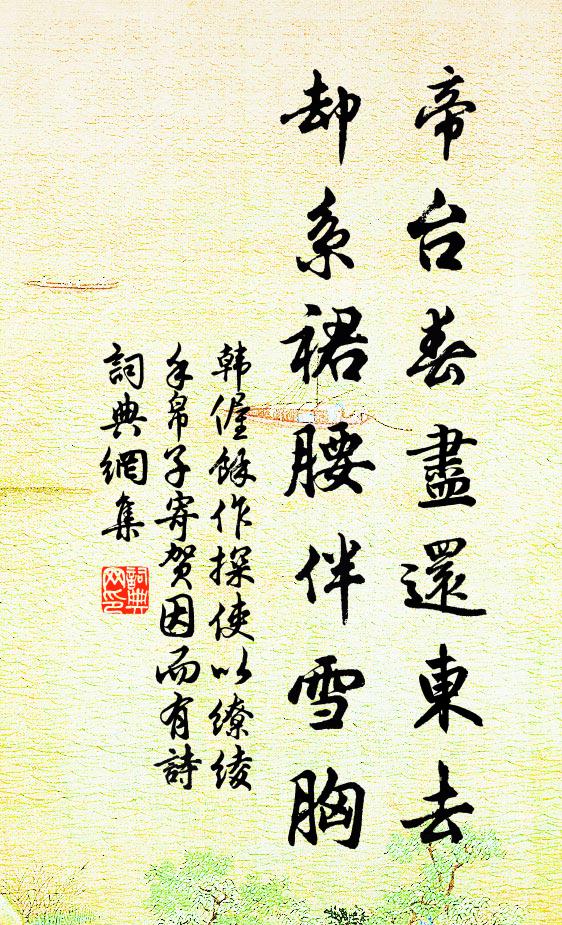 帝台春盡還東去
却系裙腰伴雪胸
韩偓餘作探使以缭绫
手帛子寄贺因而有詩
詞典網集
詞典网印